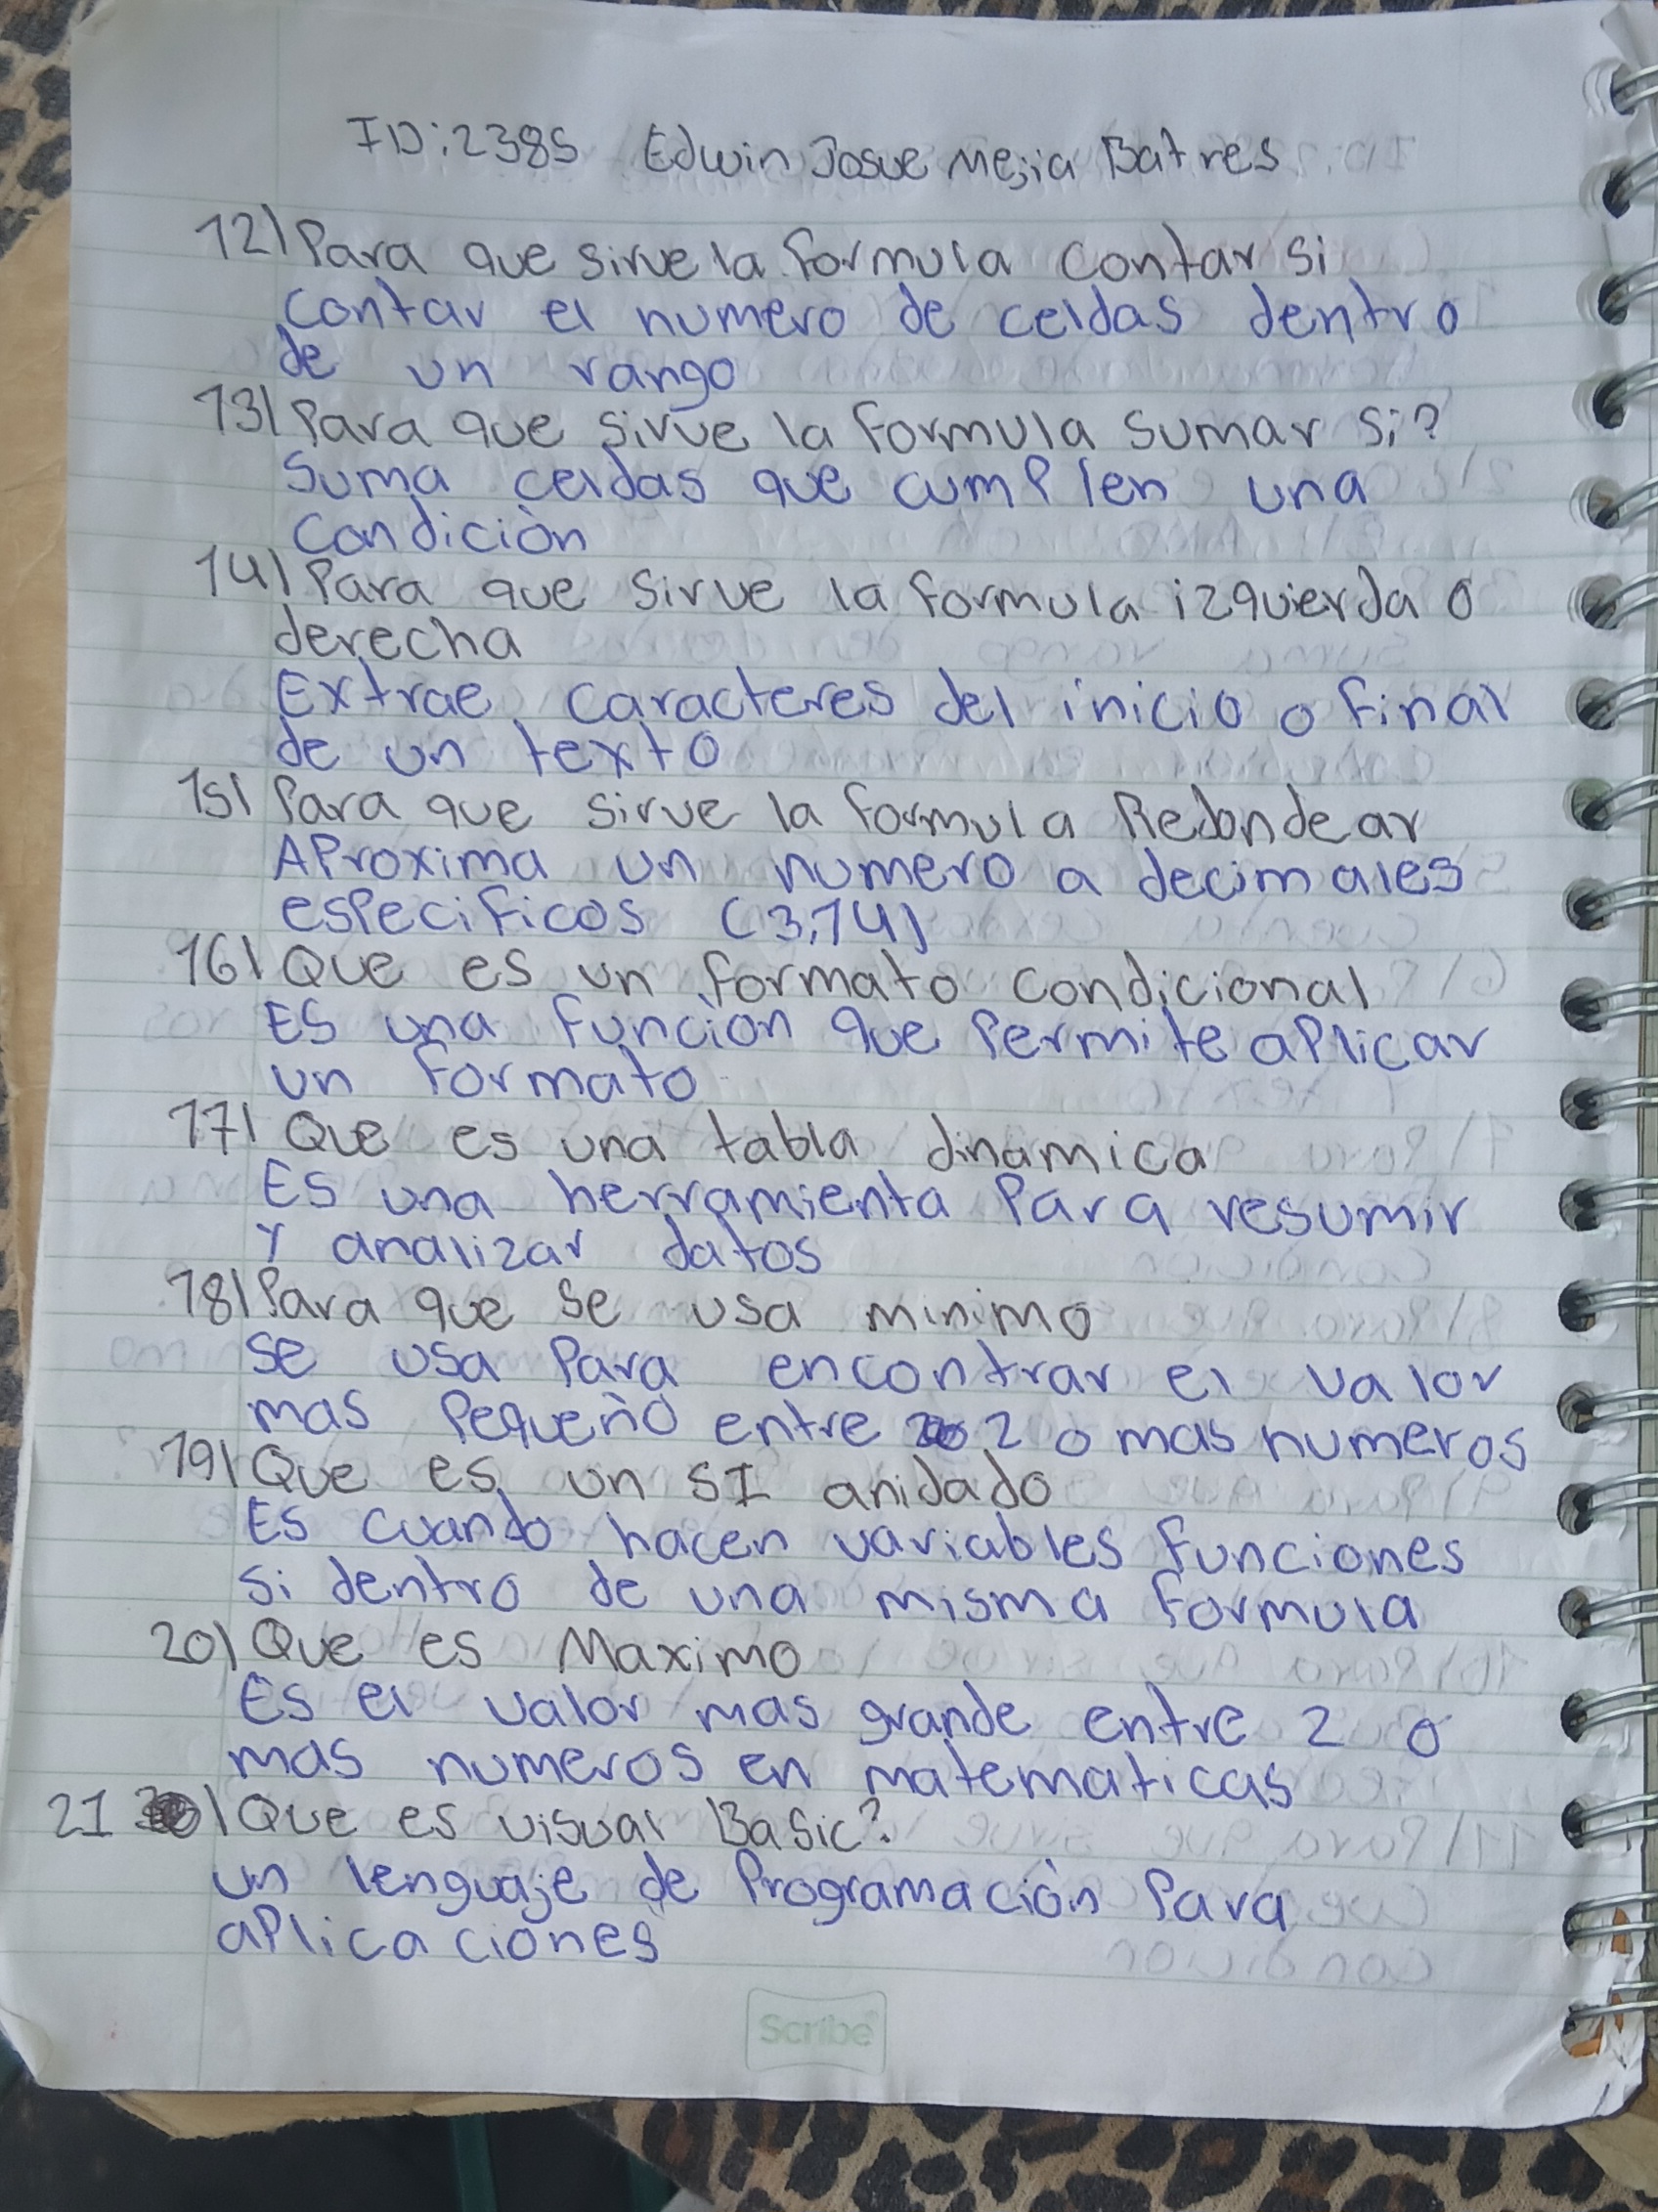 ID:2385 Edwin Josue Mejia Batres
12) Para que sirve la formula contar si
contar el numero de celdas dentro
de un rango
13) Para que sirve la formula sumar si?
Suma celdas que cumplen una
condición
14) Para que sirve la formula izquierda o
derecha
Extrae caracteres del inicio o final
de un texto
15) Para que sirve la formula Redondear
Aproxima un numero a decimales
especificos (3,14)
16) Que es un formato condicional
Es una función que permite aplicar
un formato
17) Que es una tabla dinamica
Es una herramienta para resumir
y analizar datos
18) Para que se usa minimo
se usa para encontrar el valor
mas pequeño entre 2 o mas numeros
19) Que es un SI anidado
Es cuando hacen variables funciones
si dentro de una misma formula
20) Que es Maximo
Es el valor mas grande entre 2 o
mas numeros en matematicas
21) Que es visual Basic?
un lenguaje de programación para
aplicaciones
Scribe